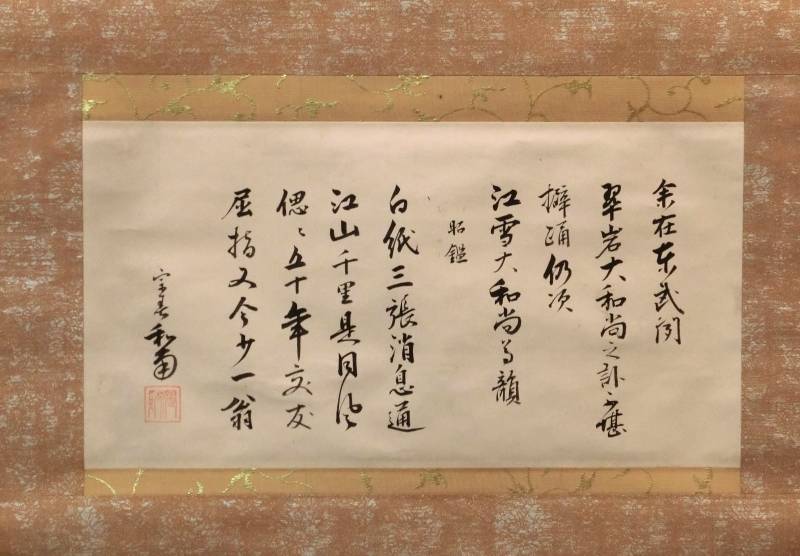 余在东武闻
翠岩大和尚之訃不堪
擗踊仍次
江雪大和尚高韻
昭鑑
白紙三張消息通
江山千里是同風
偲〻五十年交友
屈指又今少一翁
宗 和南